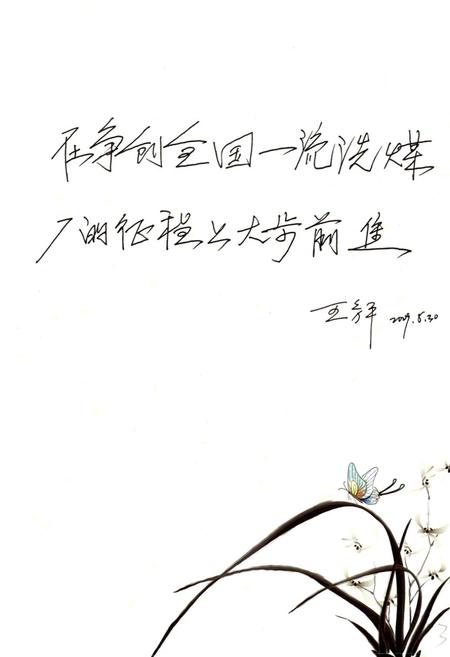 在争创全国一流洗煤
厂的征程上大步前進
王
2009.5.30